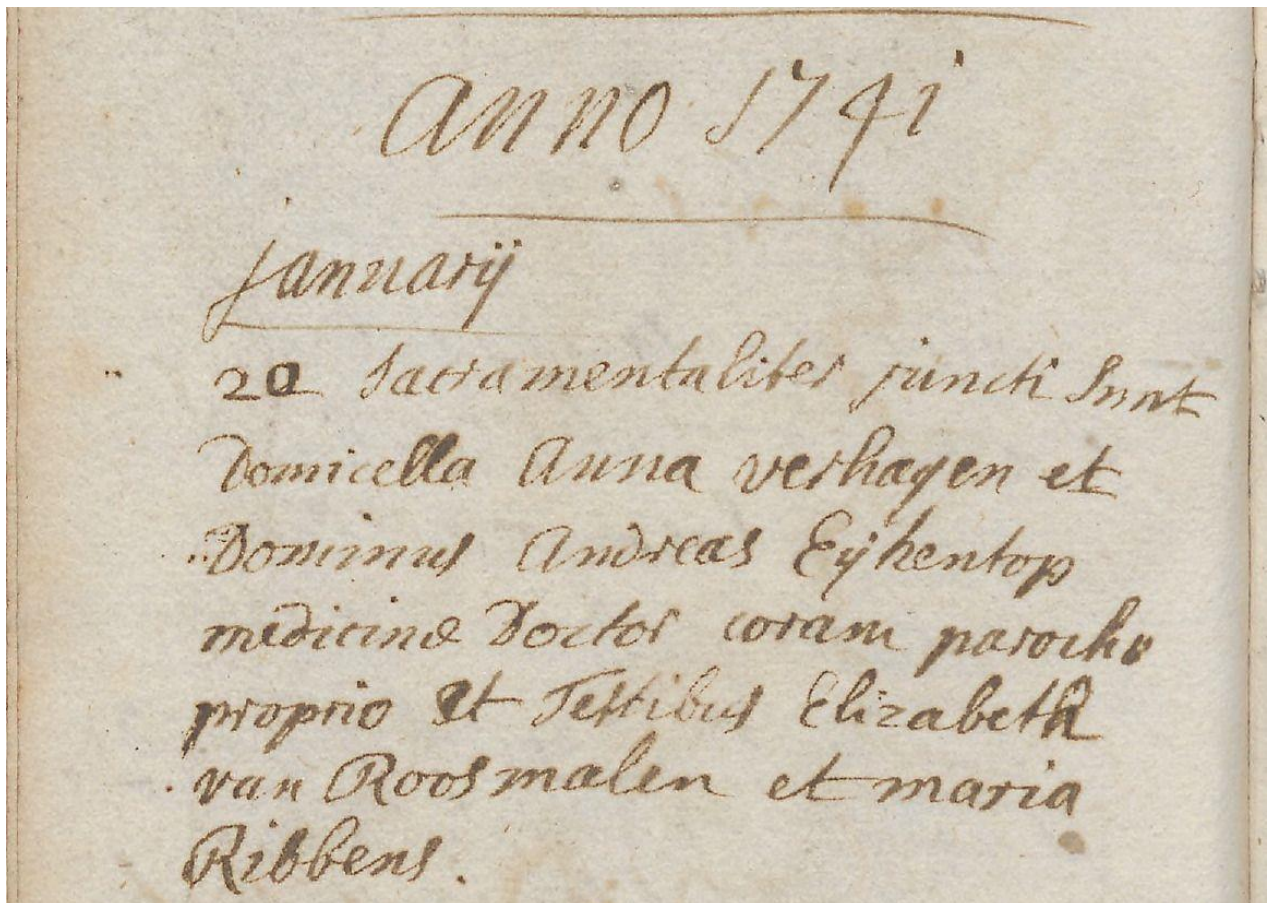 Anno 1741
januarij
20 Sacramentaliter juncti Sunt
Domicella Anna verhagen et
Dominus Andreas Eijhentop
medicinæ Doctor coram parocho
proprio et Testibus Elizabeth
van Roosmalen et maria
Ribbens.